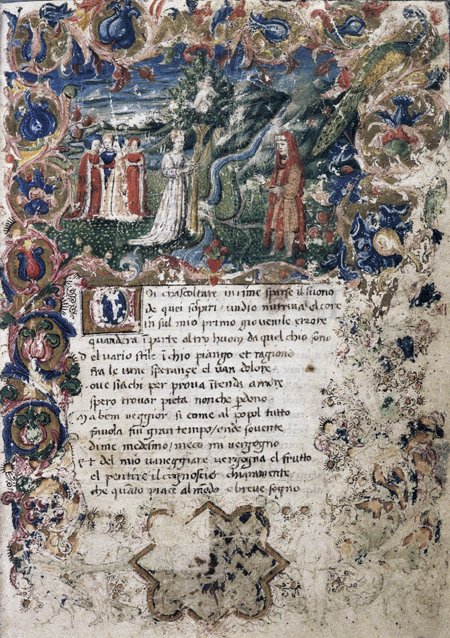 VOi chascoltate in rime sparse il suono
de quei sospiri undio nutriva el core
in sul mio primo giovenile errore
quandera i parte altro huom da quel chio sono
Del vario stile i chio piango et ragiono
fra le vane speranze el van dolore
ove sia chi per prova itenda amore
spero trovar pieta non che pdono
Ma ben veggior si come al popol tutto
favola fui gran tempo/onde sovente
di me medesmo/meco mi vergogno
Et del mio vaneggiare vergogna el frutto
el pentire el cognoscier chiaramente
che quãto piace al mõdo e breve sogno